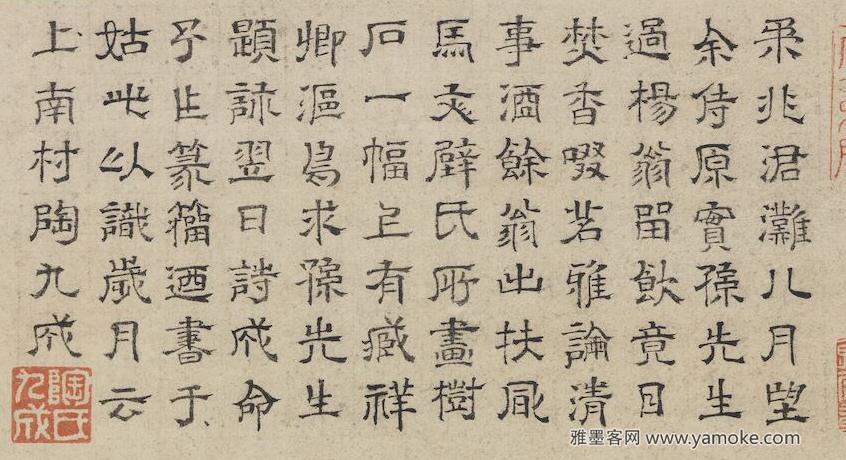 柔兆涒灘八月望
余侍原實孫先生
過楊翁留飲竟日
焚香啜茗雅論清
事酒餘翁出扶風
馬文璧氏所畫樹
石一幅上有臧祥
卿漚鳥求孫先生
題詠翌日詩成命
予篆籀迺書于
姑此以識歲月云
上南村陶九成
陶氏九成
雅墨客网 www.yamoke.com